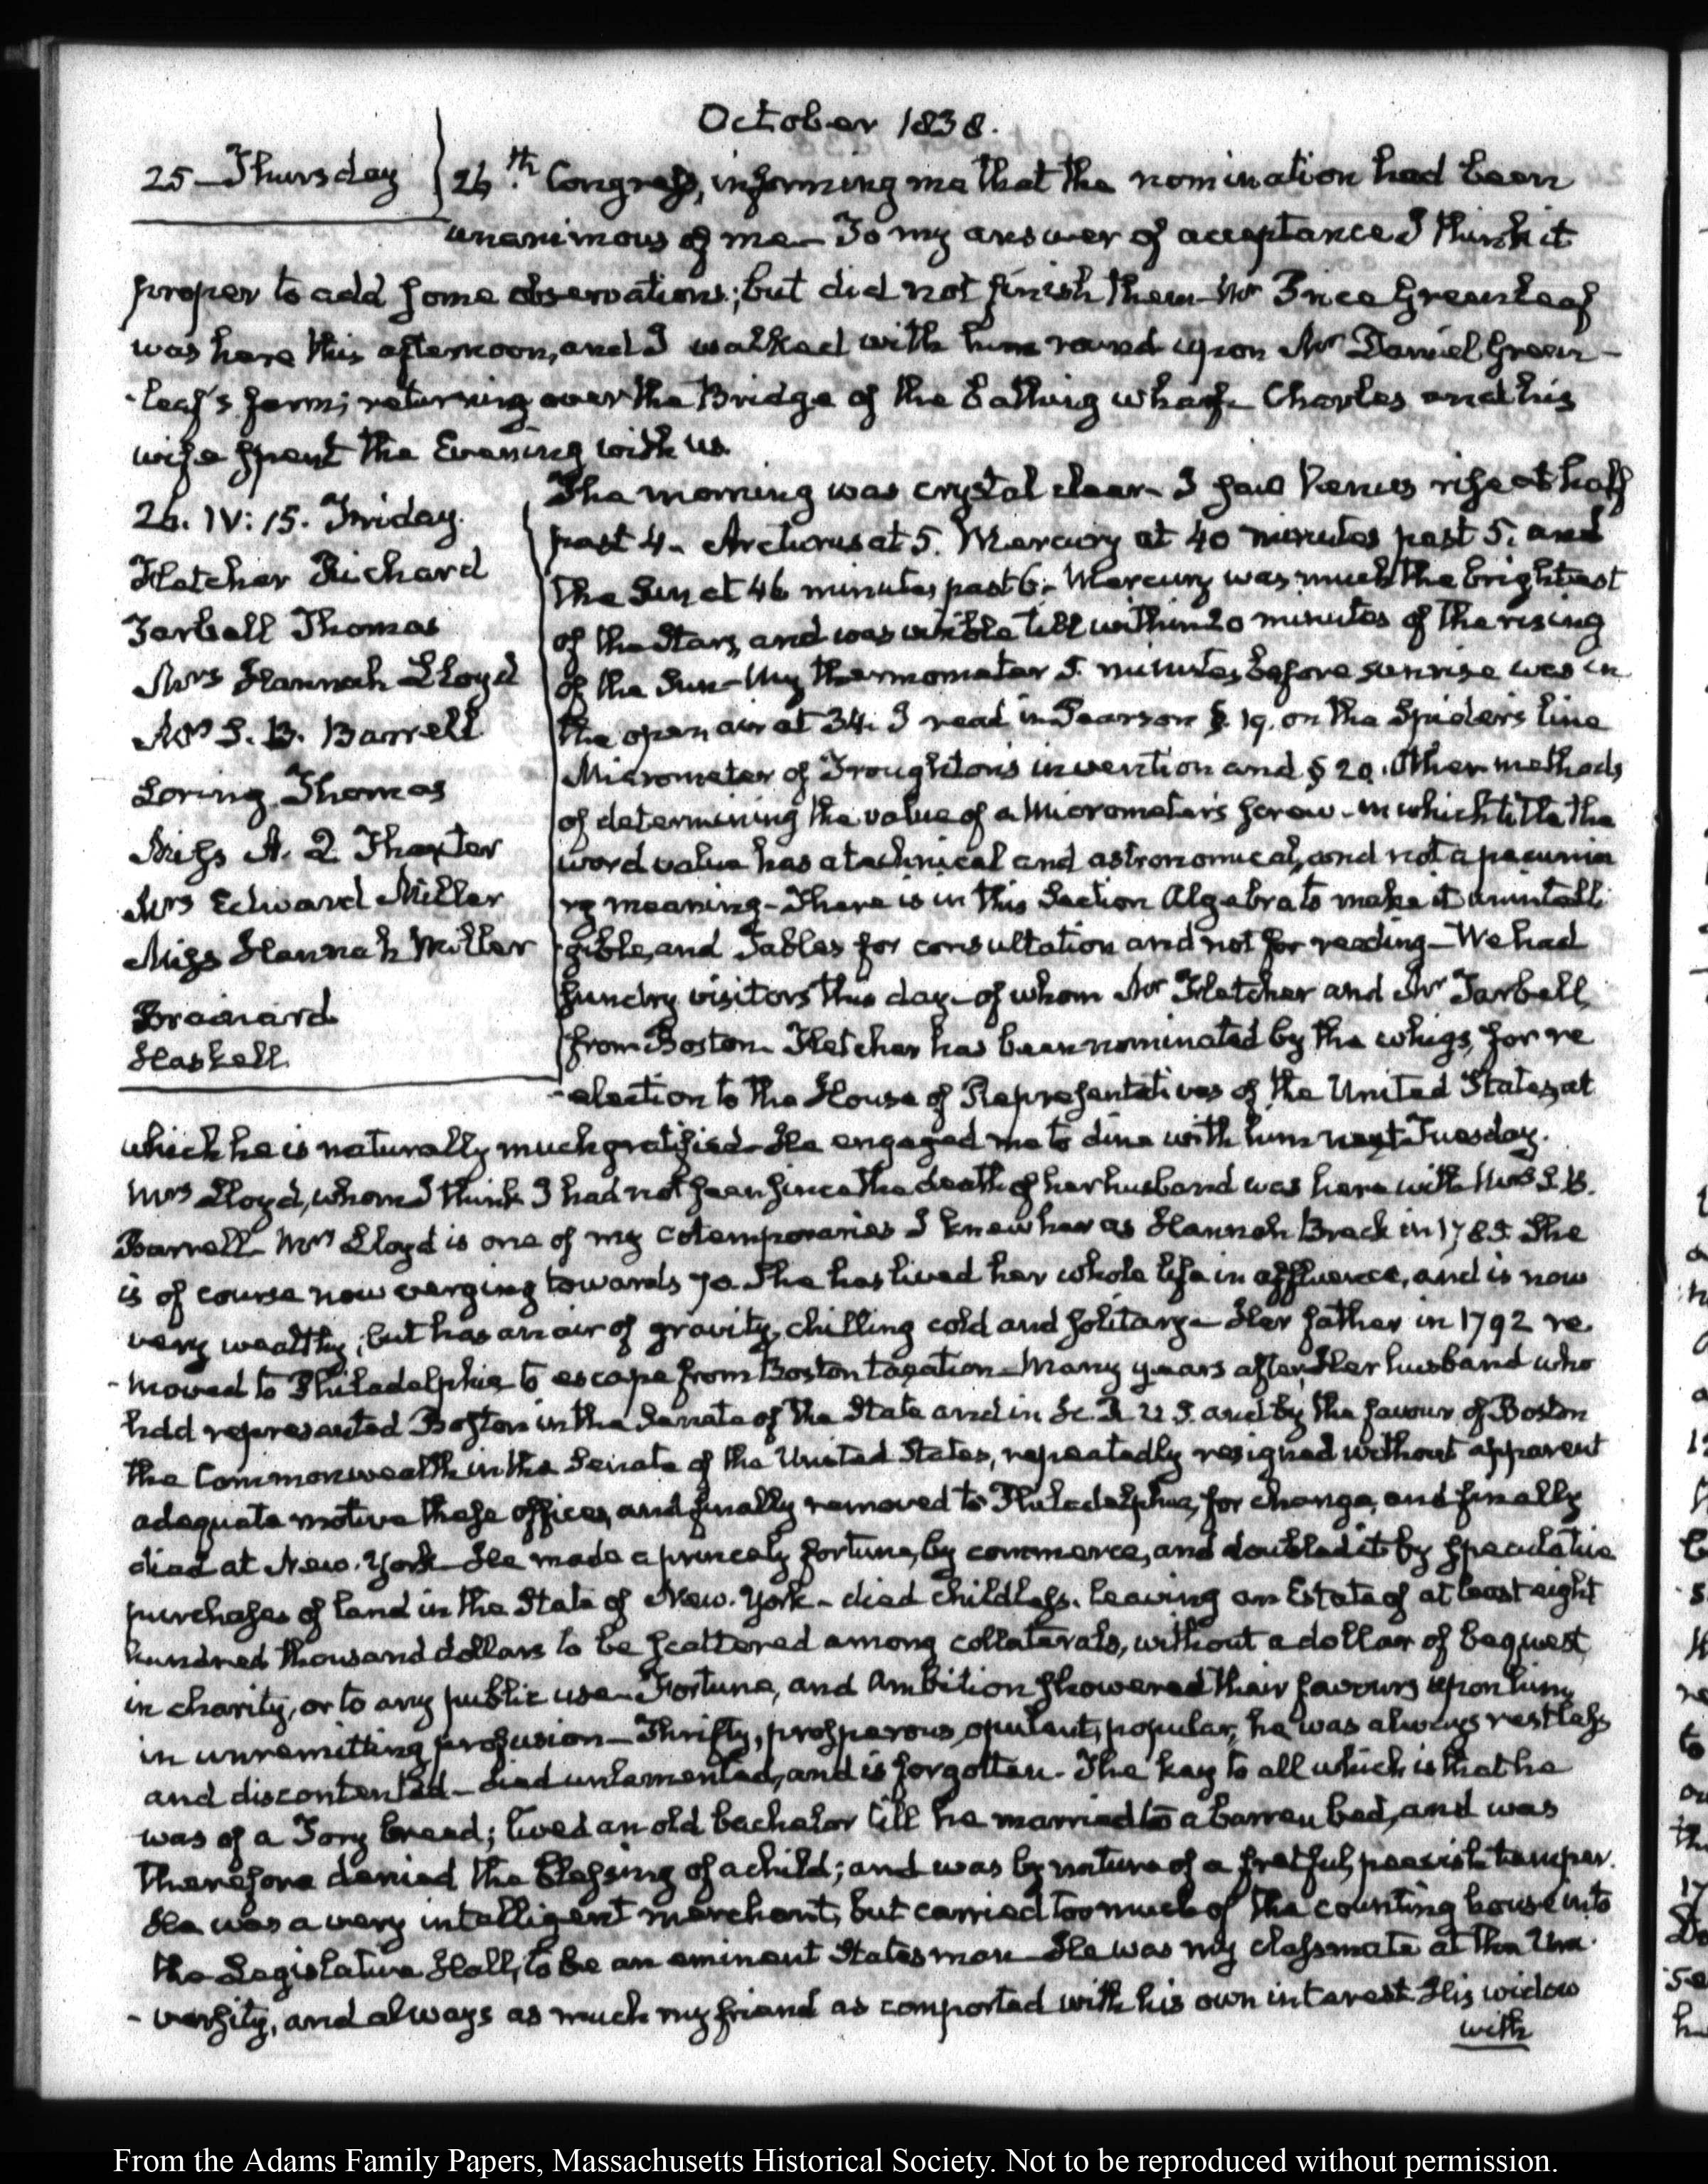 October 1838.
25 Thursday
26th. Congress, informing me that the nomination had been
unanimous of me - To my answer of acceptance I think it
proper to add some observations; but did not finish them - Mr Price Greenleaf
was here this afternoon, and I walked with him round upon Mr Daniel Green-
-leaf's farm; returning over the Bridge of the bathing wharf - Charles and his
wife spent the Evening with us.
26. IV: 15. Friday.
Fletcher Richard
Tarbell Thomas
Mrs Hannah Lloyd
Mrs S. B. Barrell
Loring Thomas
Miss A. Q Thaxter
Mrs Edward Miller
Miss Hannah Miller
Brainard
Haskell
The morning was crystal clear - I saw Venus rise at half
past 4 - Arcturus at 5. Mercury at 40 minutes past 5. and
the Sun at 46 minutes past 6 - Mercury was much the brightest
of the Stars, and was visible till within 20 minutes of the rising
of the Sun - My thermometer 5. minutes before sunrise was in
the open air at 34. I read in Pearson §. 19. on the Spider's line
Micrometer of Troughton's invention and § 20. Other methods
of determining the value of a Micrometer's screw - in which title the
word value has a technical and astronomical, and not a pecunia
ry meaning - There is in this Section Algebra to make it unintelli
gible, and Tables for consultation and not for reading - We had
sundry visitors this day - of whom Mr Fletcher and Mr Tarbell,
from Boston - Fletcher has been nominated by the whigs, for re
-election to the House of Representatives of the United States, at
which he is naturally much gratified - He engaged me to dine with him next Tuesday.
Mrs Lloyd, whom I think I had not seen since the death of her husband was here with Mrs S. B.
Barrell - Mrs Lloyd is one of my cotemporaries I knew her as Hannah Breck in 1785. She
is of course now verging towards 70. She has lived her whole life in affluence, and is now
very wealthy; but has an air of gravity, chilling cold and solitary - Her father in 1792 re
-moved to Philadelphia to escape from Boston taxation - Many years after, Her husband who
had represented Boston in the Senate of the State and in H. R. U. S. and by the favour of Boston
the Commonwealth in the Senate of the United States, repeatedly resigned without apparent
adequate motive these offices, and finally removed to Philadelphia, for change, and finally
died at New. York - He made a princely fortune, by commerce, and doubled it by speculative
purchases of land in the State of New. York - died childless. leaving an Estate of at least eight
hundred thousand dollars to be scattered among collaterals, without a dollar of bequest,
in charity, or to any public use - Fortune, and Ambition showered their favours upon him,
in unremitting profusion - Thrifty, prosperous, opulent, popular, he was always restless
and discontented - died unlamented, and is forgotten - The key to all which is that he
was of a Tory breed; lived an old bachelor till he married to a barren bed, and was
therefore denied the blessing of a child; and was by nature of a fretful, peevish temper.
He was a very intelligent merchant, but carried too much of the counting house into
the Legislative Hall, to be an eminent Statesman - He was my classmate at the Uni
-versity, and always as much my friend as comported with his own interest. His widow
with
From the Adams Family Papers, Massachusetts Historical Society. Not to be reproduced without permission.